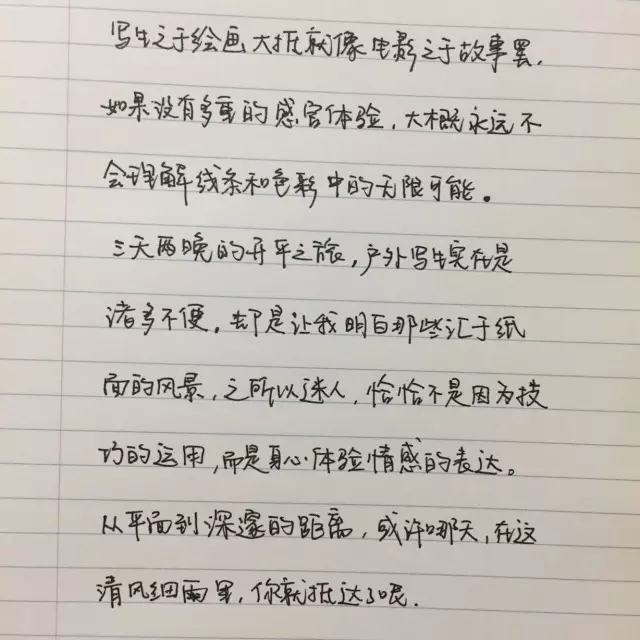 写生之于绘画大抵就像电影之于故事罢.
如果没有多重的感官体验,大概永远不
会理解线条和色彩中的无限可能。
三天两晚的开平之旅,户外写生实在是
诸多不便,却是让我明白那些汇于纸
面的风景,之所以迷人,恰恰不是因为技
巧的运用,而是身心体验情感的表达。
从平面到深邃的距离,或许哪天,在这
清风细雨里,你就抵达了呢.